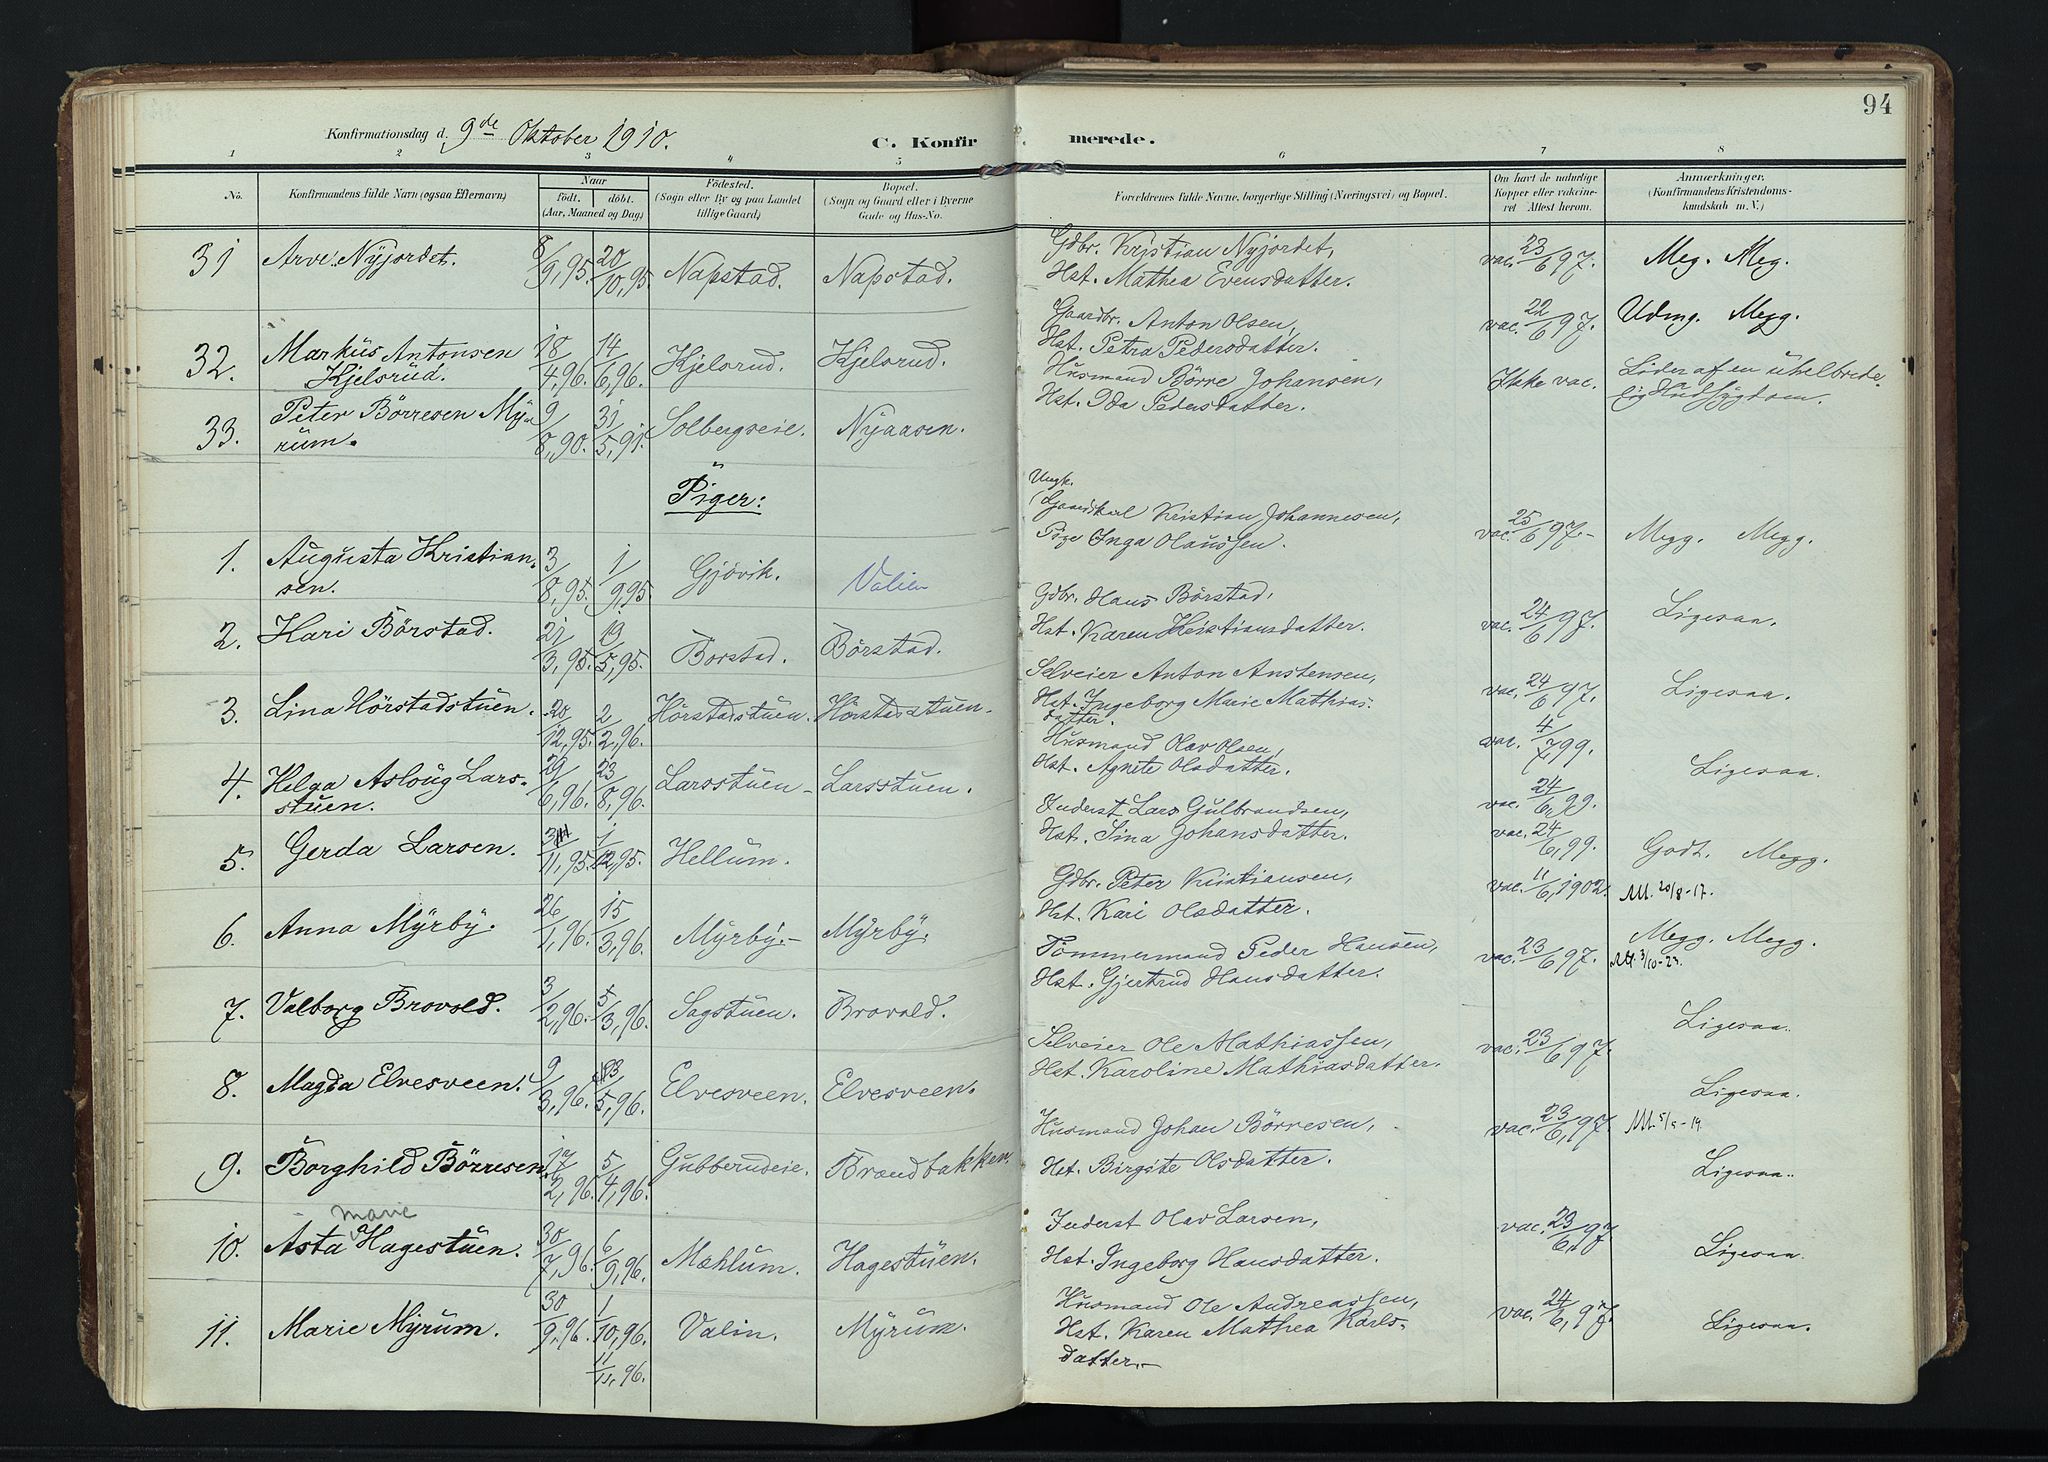 94
Konfirmationsdag d. 9de Oktober 1910.
C. Konfirmerede.
1 2 3 4 5 6 7 8
No.
Konfirmandens fulde Navn (ogsaa Efternavn)
Naar
født. døbt.
(Aar, Maaned og Dag)
Fødested.
(Sogn eller By og paa Landet
tillige Gaard)
Bopæl.
(Sogn og Gaard eller i Byerne
Gade og Hus-No.
Forældrenes fulde Navne, borgerlige Stilling (Næringsvei) og Bopæl.
Om havt de naturlige
Kopper eller vakcine-
ret Attest herom.
Anmærkninger.
(Konfirmandens Kristendoms-
kundskab m. V.)
31 Arve Nyjordet. 8/9,95. 20/10,95. Napstad. Napstad.
Gdbr. Kristian Nyjordet,
Hst. Mathea Evensdatter.
vac. 23/6 97. Meg. Meg.
32. Markus Antonsen
Kjelsrud.
18/4,96. 14/6,96. Kjelsrud. Kjelsrud.
Gaardbr. Anton Olsen,
Hst. Petra Pedersdatter.
vac. 22/6 97. Udmg. Megg.
33. Peter Börresen My-
rum.
9/8,90. 31/5,91. Solbergseie. Nyaasen.
Husmand Börre Johansen,
Hst. Ida Pedersdatter.
Ikke vac. Lider af en uhelbrede-
lig Hudsygdom.
Piger:
1. Augusta Kristian-
sen.
3/8,95. 1/9,95 Gjövik. Valien
Ungk.
Gaardkarl Kristian Johannesen,
Pige Inga Olaussen.
vac. 25/6 97.- Megg. Megg.
2. Kari Börstad. 21/3,95. 19/5,95. Borstad. Börstad.
Gdbr. Hans Börstad,
Hst. Karen Kristiansdatter.
vac. 24/6 97. Ligesaa.
3. Lina Hörstadstuen. 20/12,95. 2/2,96. Hörstadstuen. Hörstadstuen.
Selveier Anton Anstensen,
Hst. Ingeborg Marie Mathias-
datter.
vac. 24/6 97. Ligesaa.
4. Helga Asloug Lars-
stuen.
29/6,96. 23/8,96. Larsstuen- Larsstuen.
Husmand Olav Olsen,
Hst. Agnete Olsdatter.
vac. 4/7 99. Ligesaa.
5. Gerda Larsen. 11,95. 1/12,95. Hellum.
Inderst Lars Gulbrandsen,
Hst. Sina Johansdatter.
vac. 24/6,99.
vac. 24/6,99. Godt. Megg.
6. Anna Myrby. 26/1,96. 15/3,96. Myrby.- Myrby.
Gdbr. Peter Kristiansen,
Hst. Kari Olsdatter.
vac. 11/6,1902. Utl. 20/8-17.
Megg. Megg.
7. Valborg Brovold. 3/2,96.- 5/3,96. Sagstuen. Brovold.
Tömmermand Peder Hansen,
Hst. Gjertrud Hansdatter.
vac. 23/6 97. Utl. 3/10-23.
Ligesaa.
8. Magda Elvesveen. 9/3,96. 5,96. Elvesveen. Elvesveen.
Selveier Ole Mathiassen,
Hst. Karoline Mathiasdatter.
vac. 23/6 97. Ligesaa.
9. Borghild Börresen. 17/2,96. 5/4,96. Gubberudeie. Brandbakken.
Husmand Johan Börresen,
Hst. Birgite Olsdatter.
vac. 23/6,97. Utl. 5/5-19.
Ligesaa.
Marie
10. Asta Hagestuen. 30/7,96. 6/9,96. Mæhlum. Hagestuen.
Inderst Olav Larsen,
Hst. Ingeborg Hansdatter.
vac. 23/6,97 Ligesaa.
11. Marie Myrum. 30/9,96. 1/10,96. Valin. Myrum.
11/11,96.
Husmand Ole Andreassen,
Hst. Karen Mathea Karls-
datter.-
vac. 24/6,97. Ligesaa.